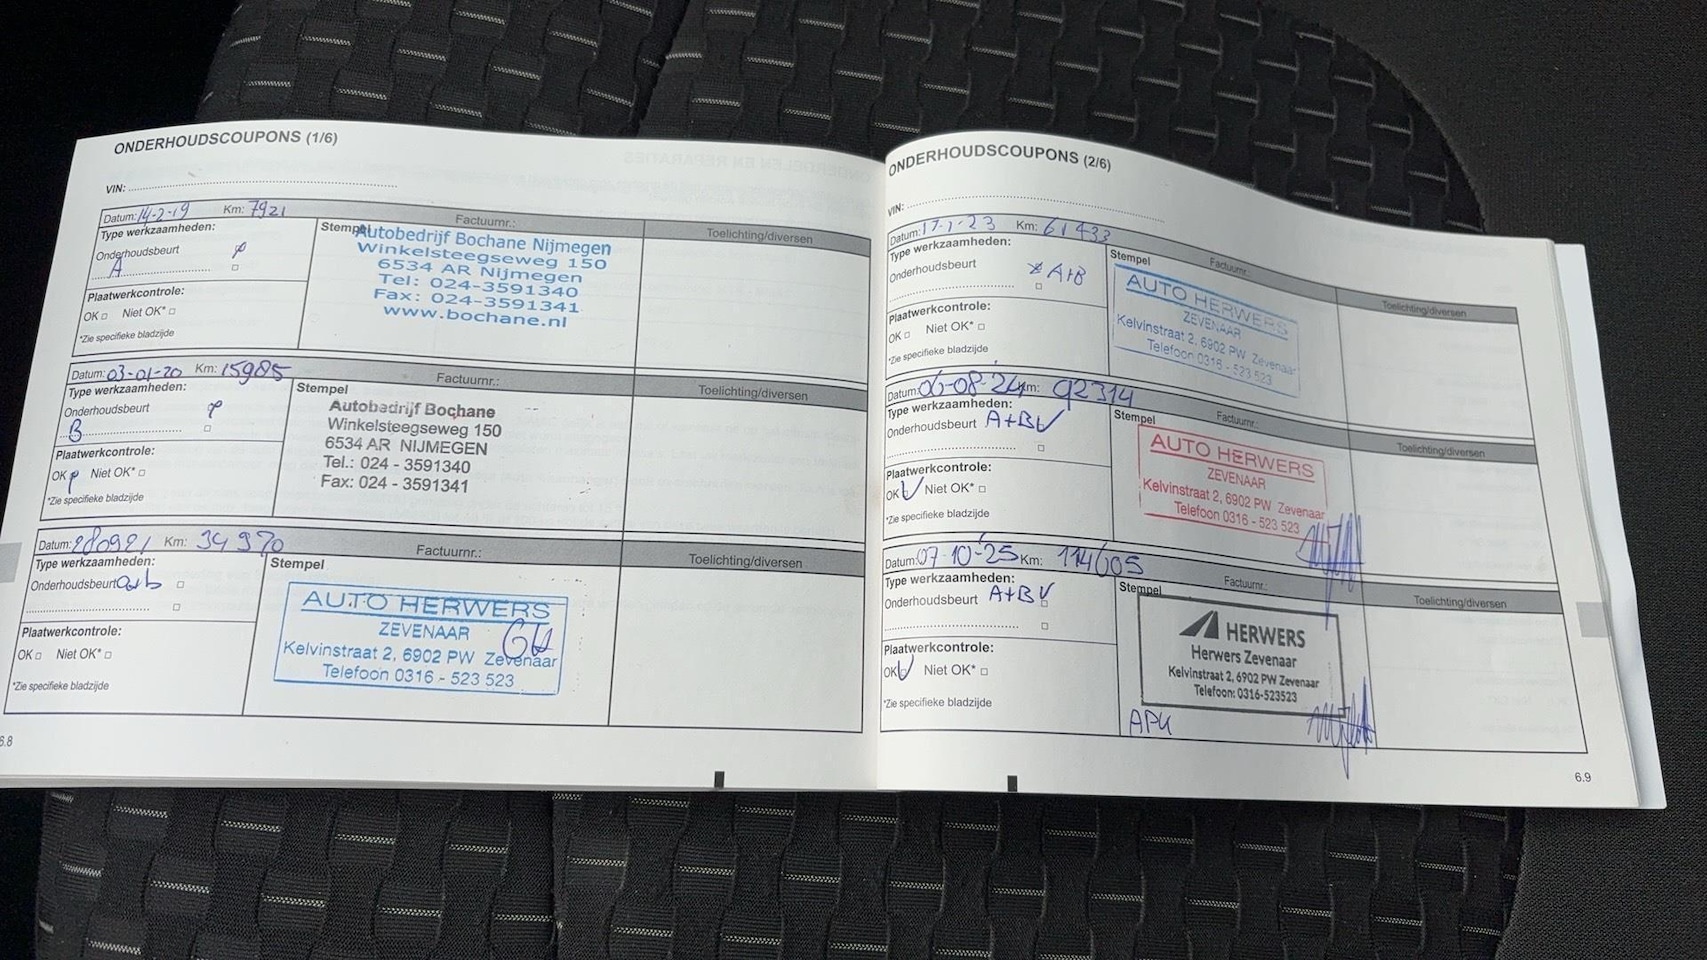 ONDERHOUDSCOUPONS (1/6)
VIN:
Datum: 14-2-19 Km: 7921 Factuurnr.: Toelichting/diversen
Type werkzaamheden:
Onderhoudsbeurt
A
Plaatwerkcontrole:
OK □ Niet OK* □
*Zie specifieke bladzijde
Stempel
Autobedrijf Bochane Nijmegen
Winkelsteegseweg 150
6534 AR Nijmegen
Tel: 024-3591340
Fax: 024-3591341
www.bochane.nl
Datum: 03-01-20 Km: 15985 Factuurnr.: Toelichting/diversen
Type werkzaamheden:
Onderhoudsbeurt
B
Plaatwerkcontrole:
OK Niet OK* □
*Zie specifieke bladzijde
Stempel
Autobedrijf Bochane
Winkelsteegseweg 150
6534 AR NIJMEGEN
Tel.: 024 - 3591340
Fax: 024 - 3591341
Datum: 280921 Km: 34970 Factuurnr.: Toelichting/diversen
Type werkzaamheden:
Onderhoudsbeurt □
□
Plaatwerkcontrole:
OK □ Niet OK* □
*Zie specifieke bladzijde
Stempel
AUTO HERWERS
ZEVENAAR
Kelvinstraat 2, 6902 PW Zevenaar
Telefoon 0316 - 523 523
6.8
ONDERHOUDSCOUPONS (2/6)
VIN:
Datum: 17-1-23 Km: 61433 Factuurnr.: Toelichting/diversen
Type werkzaamheden:
Onderhoudsbeurt A+B
□
Plaatwerkcontrole:
OK □ Niet OK* □
*Zie specifieke bladzijde
Stempel
AUTO HERWERS
ZEVENAAR
Kelvinstraat 2, 6902 PW Zevenaar
Telefoon 0316 - 523 523
Datum: 06-08-24 Km: 92314 Factuurnr.: Toelichting/diversen
Type werkzaamheden:
Onderhoudsbeurt A+B
□
Plaatwerkcontrole:
OK Niet OK* □
*Zie specifieke bladzijde
Stempel
AUTO HERWERS
ZEVENAAR
Kelvinstraat 2, 6902 PW Zevenaar
Telefoon 0316 - 523 523
Datum: 07-10-25 Km: 114605 Factuurnr.: Toelichting/diversen
Type werkzaamheden:
Onderhoudsbeurt A+B
□
Plaatwerkcontrole:
OK Niet OK* □
*Zie specifieke bladzijde
Stempel
HERWERS
Herwers Zevenaar
Kelvinstraat 2, 6902 PW Zevenaar
Telefoon: 0316-523523
APK
6.9